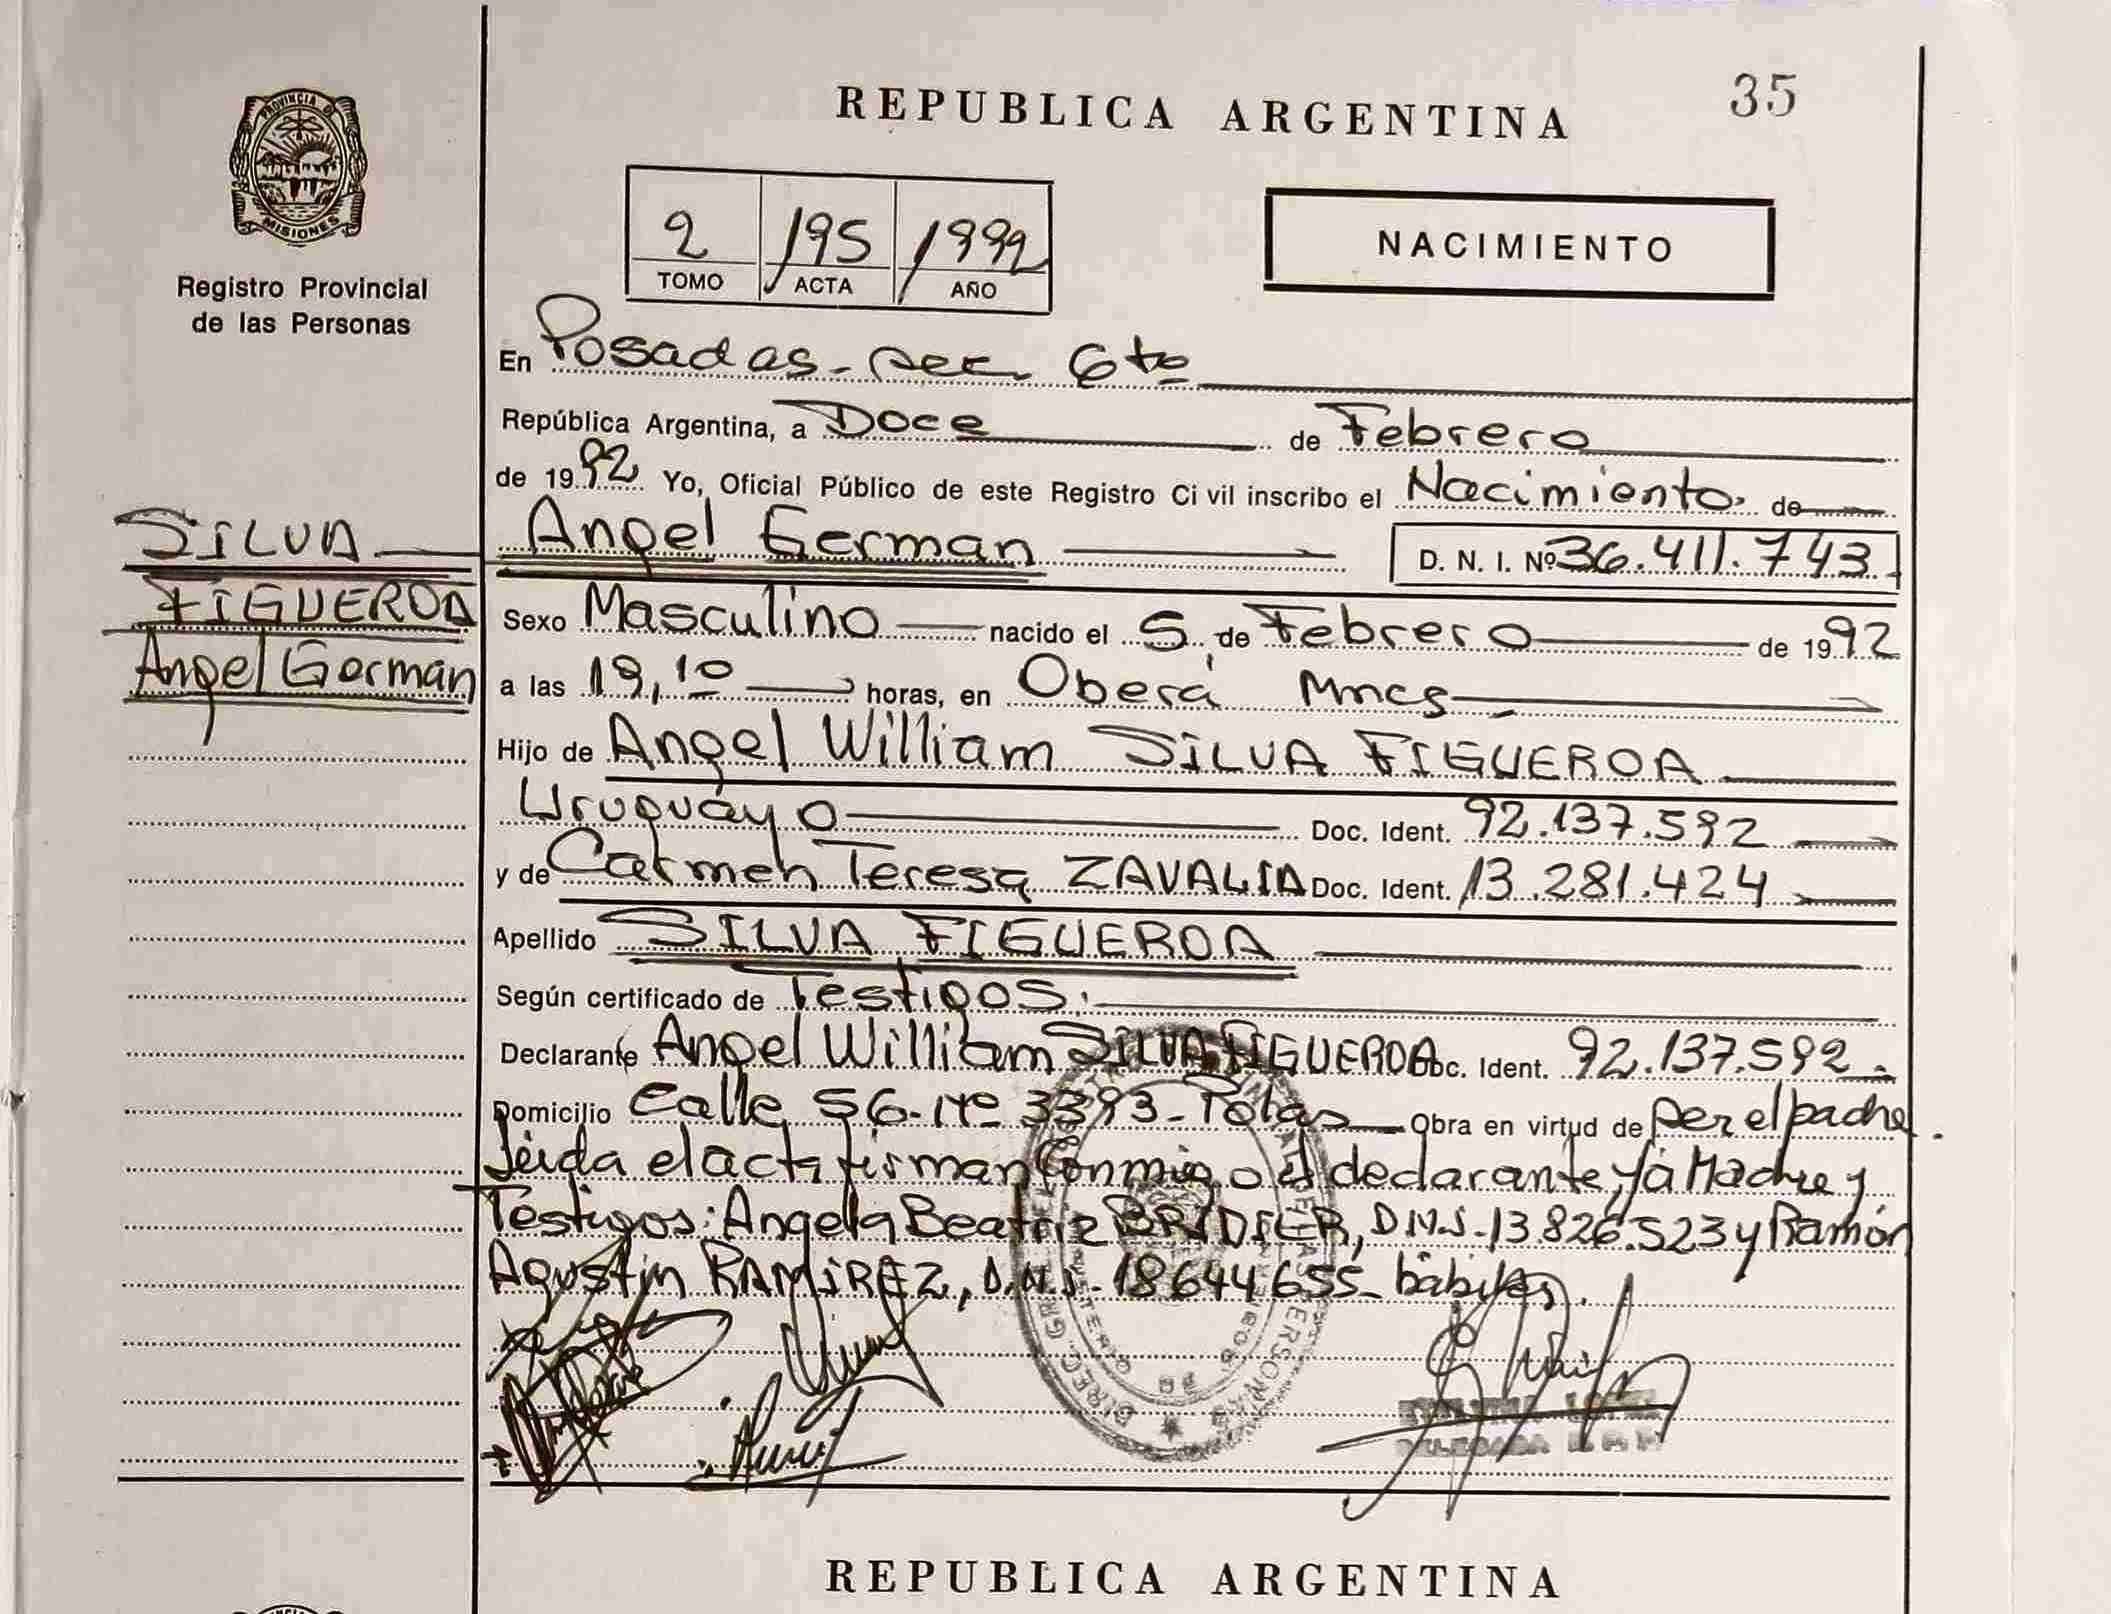 35
REPUBLICA ARGENTINA
PROVINCIA DE
MISIONES
Registro Provincial
de las Personas
2 195 1992
TOMO ACTA AÑO
NACIMIENTO
En Posadas - sec. 6ta
República Argentina, a Doce de Febrero
de 1992 Yo, Oficial Público de este Registro Civil inscribo el Nacimiento de
SILVA
FIGUEROA
Angel German
Angel German D. N. I. Nº 36.411.743
Sexo Masculino nacido el 5 de Febrero de 1992
a las 19,10 horas, en Oberá Mnes
Hijo de Angel William SILVA FIGUEROA
Uruguayo Doc. Ident. 92.137.592
y de Carmen Teresa ZAVALIA Doc. Ident. 13.281.424
Apellido SILVA FIGUEROA
Según certificado de Testigos.
Declarante Angel William SILVA FIGUEROA Doc. Ident. 92.137.592
Domicilio Calle 56 - Nº 3393 - Pdas Obra en virtud de ser el padre.
Leida el acta firman conmigo el declarante, la Madre y
Testigos: Angela Beatriz BRIDIER, D.N.I. 13826.523 y Ramón
Agustín RAMIREZ, D.N.I. 18644655 - hábiles.
REPUBLICA ARGENTINA